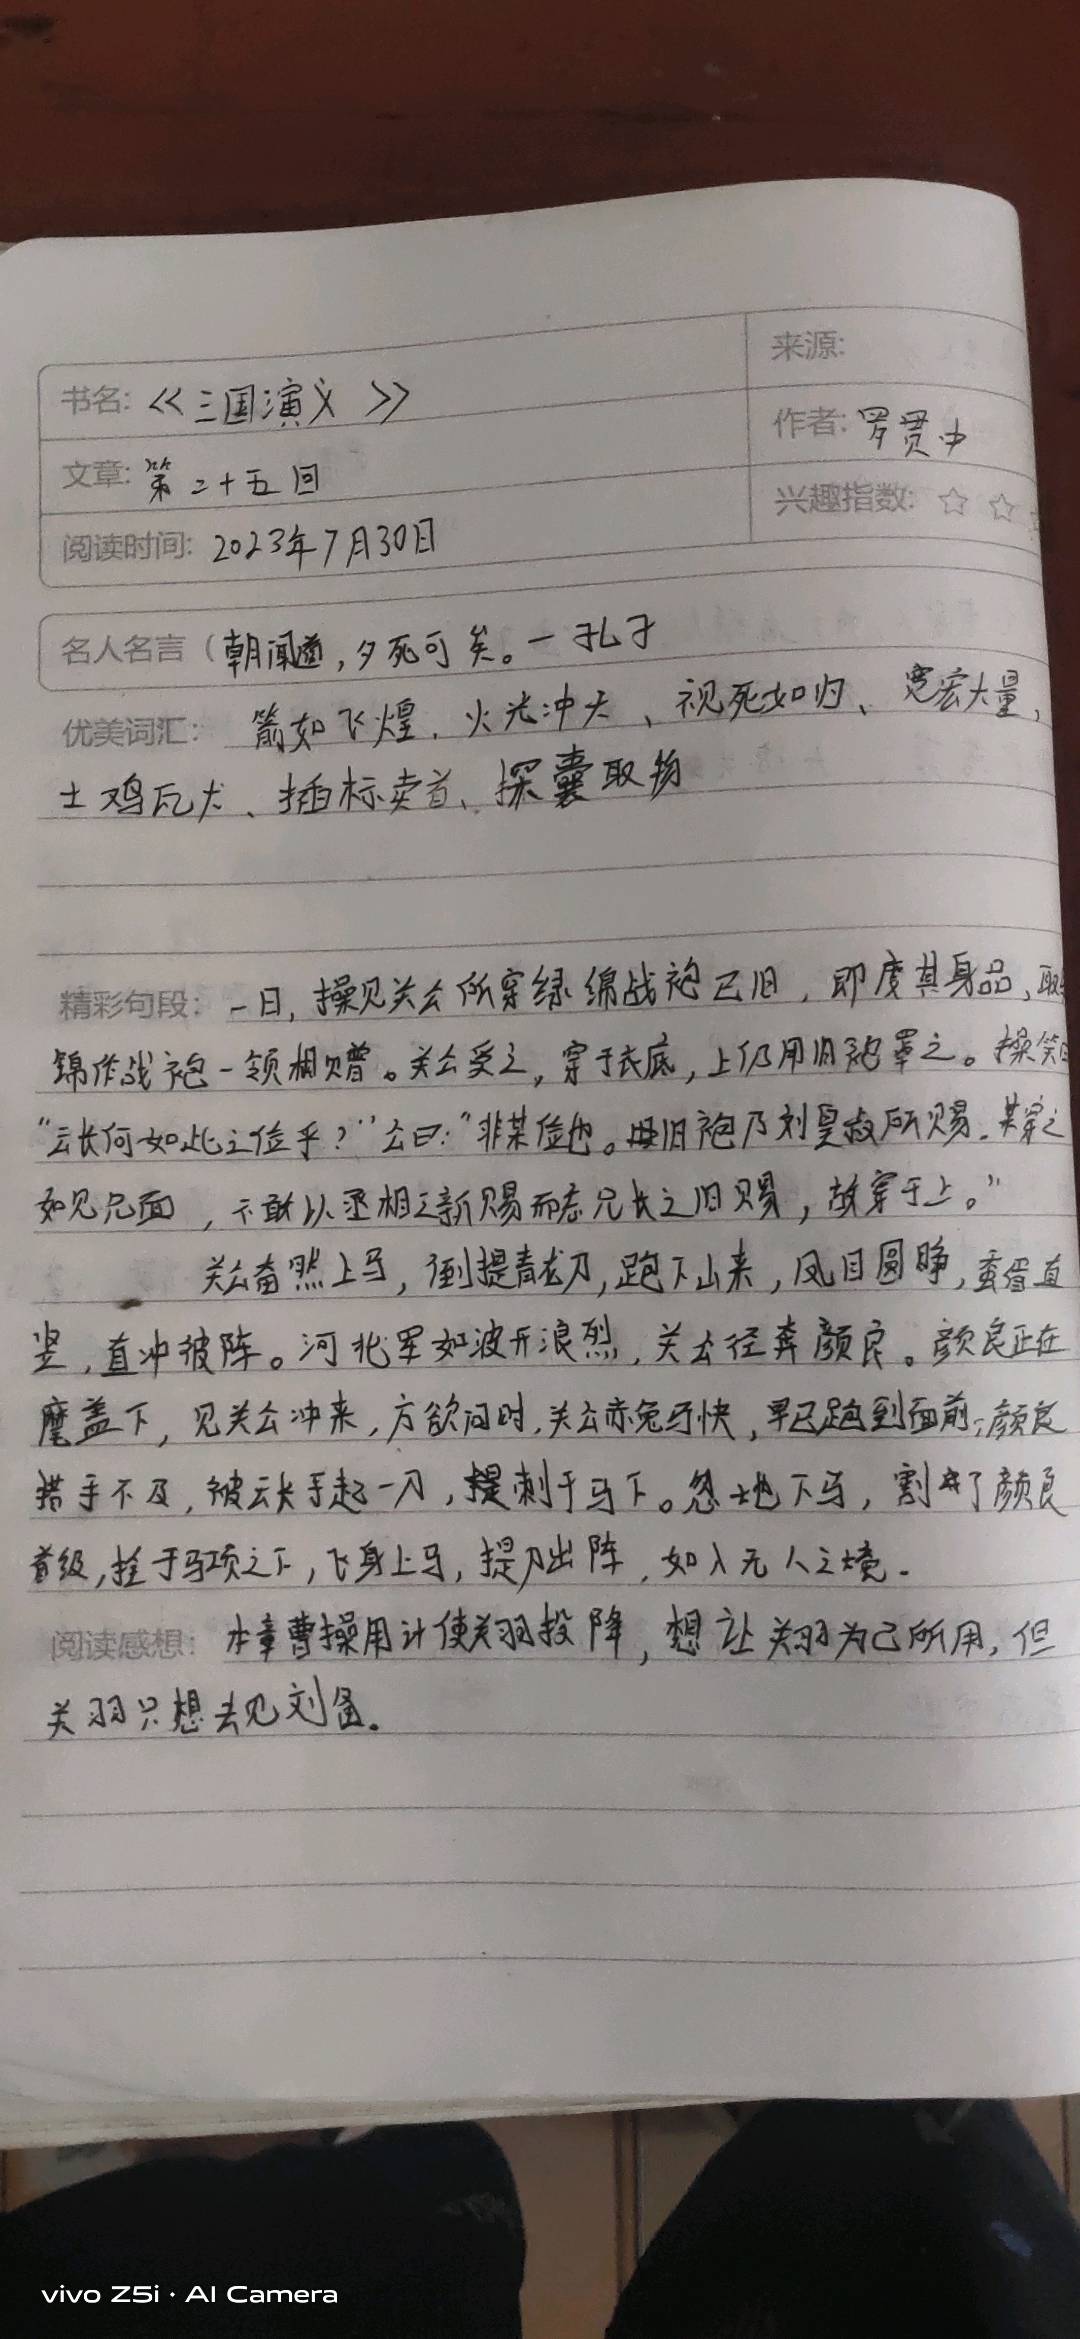 来源:
书名: 《三国演义》
作者: 罗贯中
文章: 第二十五回
兴趣指数: ☆ ☆
阅读时间: 2023年7月30日
名人名言（朝闻道,夕死可矣。一孔子
优美词汇: 箭如飞煌、火光冲天、视死如归、宽宏大量,
土鸡瓦犬、插标卖首、探囊取物
精彩句段: 一日,操见关公所穿绿绵战袍已旧,即度其身品,取
锦作战袍一领相赠。关公受之,穿于衣底,上仍用旧袍罩之。操笑曰
“云长何如此之俭乎?”公曰:“非某俭也。旧袍乃刘皇叔所赐.某穿之
如见兄面,不敢以丞相之新赐而忘兄长之旧赐,故穿于上。”
关公奋然上马,倒提青龙刀,跑下山来,凤目圆睁,蚕眉直
竖,直冲彼阵。河北军如波开浪烈,关公径奔颜良。颜良正在
麾盖下,见关公冲来,方欲问时,关公赤兔马快,早已跑到面前;颜良
措手不及,被云长手起一刀,刺于马下。忽地下马,割了颜良
首级,拴于马项之下,飞身上马,提刀出阵,如入无人之境.
阅读感想: 本章曹操用计使关羽投降,想让关羽为己所用,但
关羽只想去见刘备.
vivo Z5i · AI Camera